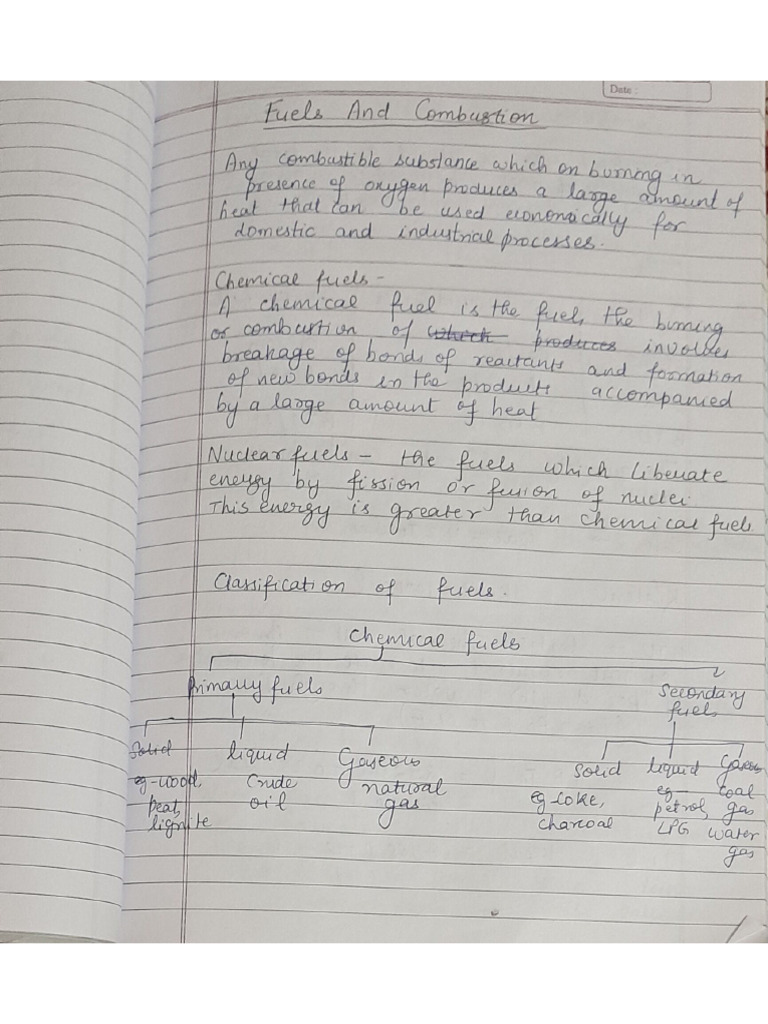 Date :
Fuels And Combustion
Any combustible substance which on burning in
presence of oxygen produces a large amount of
heat that can be used economically for
domestic and industrial processes.
Chemical fuels -
A chemical fuel is the fuel, the burning
or combustion of which produces involves
breakage of bonds of reactants and formation
of new bonds in the products accompanied
by a large amount of heat
Nuclear fuels - the fuels which liberate
energy by fission or fusion of nuclei.
This energy is greater than chemical fuels.
Classification of fuels.
Chemical fuels
Primary fuels Secondary
fuels
Solid liquid Gaseous Solid liquid Gaseous
eg-wood, Crude natural eg-coke, eg- coal
peat, oil gas charcoal petrol, gas
lignite LPG water
gas